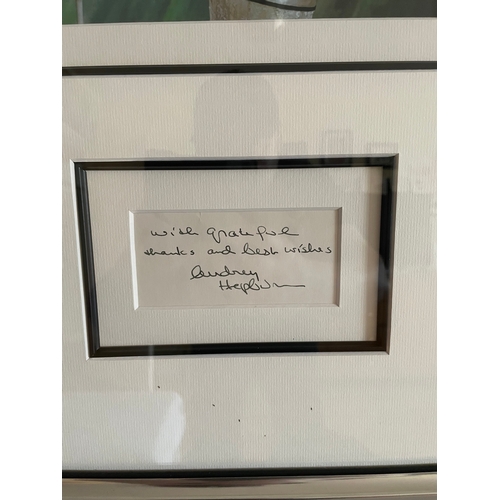 with grateful
thanks and best wishes
Audrey
Hepburn